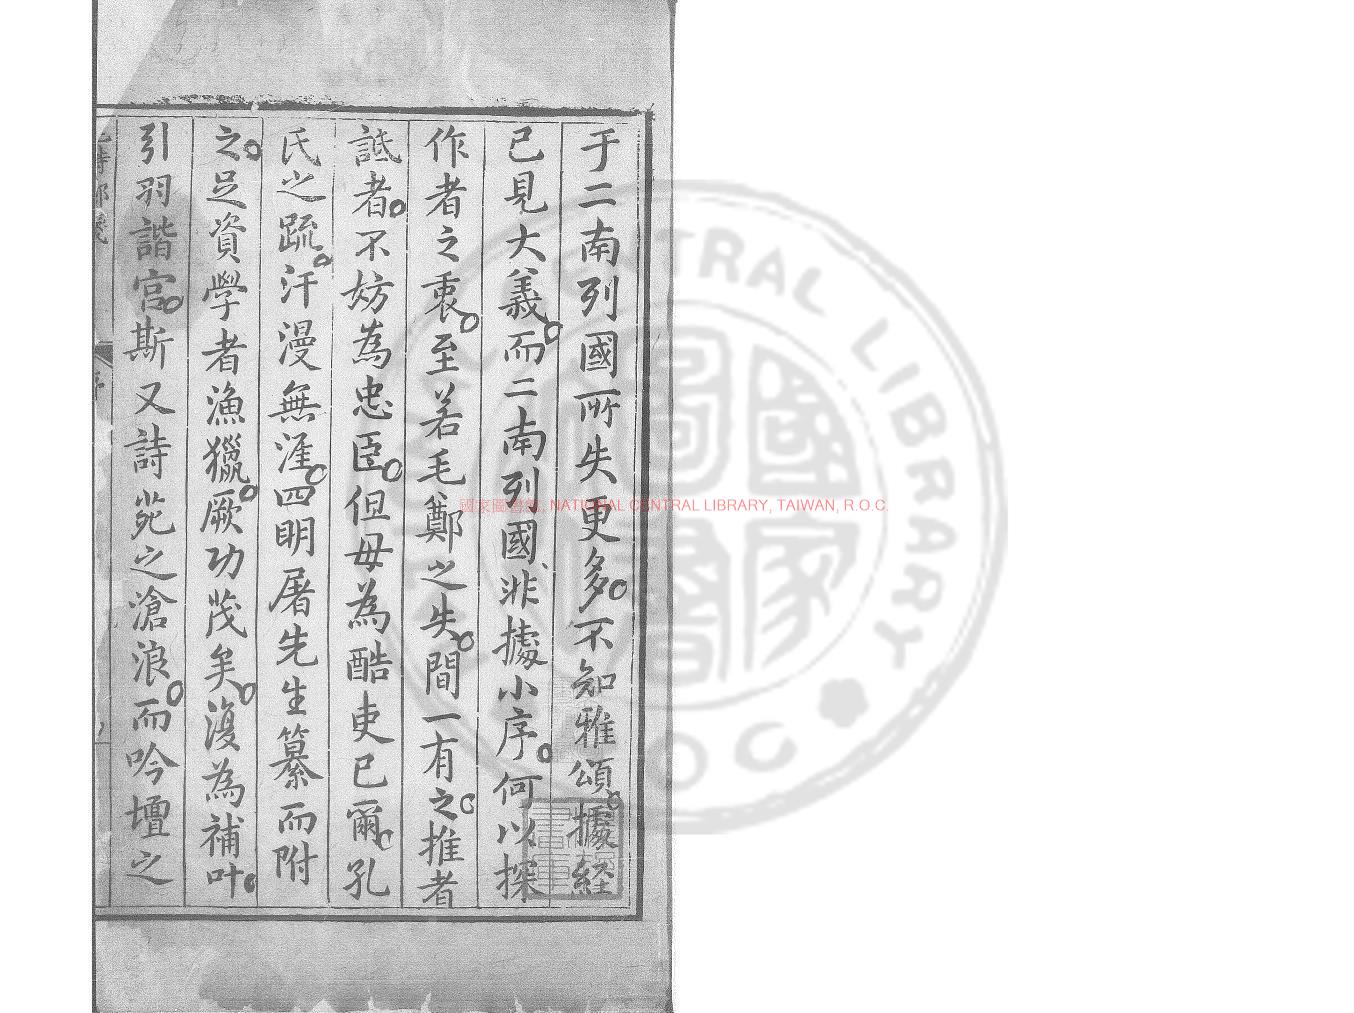 于二南列國所失更多不知雅頌據經
已見大義而二南列國非據小序何以探
作者之衷至若毛鄭之失間一有之推者
詆者不妨為忠臣但毋為酷吏已爾孔
氏之疏汗漫無涯四明屠先生纂而附
之足資學者漁獵厥功茂矣復為補叶
引羽諧宮斯又詩苑之滄浪而吟壇之
國家圖書館, NATIONAL CENTRAL LIBRARY, TAIWAN, R.O.C.